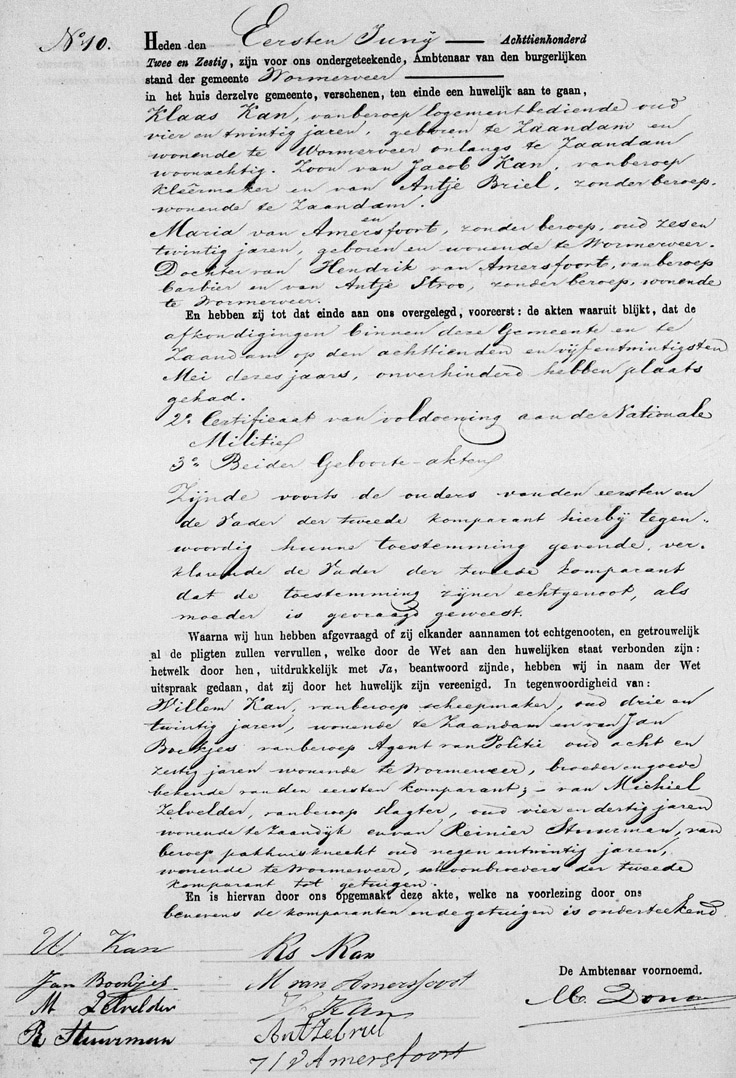 No 10.
Heden den Eersten Junij — Achttienhonderd
Twee en Zestig, zijn voor ons ondergeteekende, Ambtenaar van den burgerlijken
stand der gemeente Wormerveer —
in het huis derzelve gemeente, verschenen, ten einde een huwelijk aan te gaan,
Klaas Kan, van beroep logementbediende oud
vier en twintig jaren, geboren te Zaandam en
wonende te Wormerveer onlangs te Zaandam
woonachtig. Zoon van Jacob Kan, van beroep
kleêrmaker en van Antje Briel, zonder beroep.
wonende te Zaandam.
en
Maria van Amersfoort, zonder beroep, oud zes en
twintig jaren, geboren en wonende te Wormerveer.
Dochter van Hendrik van Amersfoort, van beroep
barbier en van Antje Stroo, zonder beroep, wonende
te Wormerveer.
En hebben zij tot dat einde aan ons overgelegd, vooreerst: de akten waaruit blijkt, dat de
afkondigingen binnen deze Gemeente en te
Zaandam op den achttienden en vijfentwintigsten
Mei dezes jaars, onverhinderd hebben plaats
gehad.
2o Certificaat van voldoening aan de Nationale
Militie
3o Beider Geboorte-akten
Zijnde voorts de ouders van den eersten en
de Vader der tweede komparant hierbij tegen-
woordig hunne toestemming gevende, ver-
klarende de Vader der tweede komparant
dat de toestemming zijner echtgenoot, als
moeder is gevraagd geweest.
Waarna wij hun hebben afgevraagd of zij elkander aannamen tot echtgenooten, en getrouwelijk
al de pligten zullen vervullen, welke door de Wet aan den huwelijken staat verbonden zijn:
hetwelk door hen, uitdrukkelijk met Ja, beantwoord zijnde, hebben wij in naam der Wet
uitspraak gedaan, dat zij door het huwelijk zijn vereenigd. In tegenwoordigheid van:
Willem Kan, van beroep scheepmaker, oud drie en
twintig jaren, wonende te Zaandam en van Jan
Boekjes van beroep Agent van Politie oud acht en
zestig jaren wonende te Wormerveer, broeder en goede
bekende van den eersten komparant; - van Michiel
Zelvelder, van beroep slagter, oud vier en dertig jaren
wonende te Zaandijk en van Reinier Stuurman, van
beroep pakhuisknecht oud negen entwintig jaren,
wonende te Wormerveer, schoonbroeders der tweede
komparant tot getuigen.
En is hiervan door ons opgemaakt deze akte, welke na voorlezing door ons
benevens de komparanten en de getuigen is onderteekend.
W Kan
Jan Boekjes
M Zelvelder
R Stuurman
Ks Kan
M van Amersfoort
Kan
Amersfoort
De Ambtenaar voornoemd.